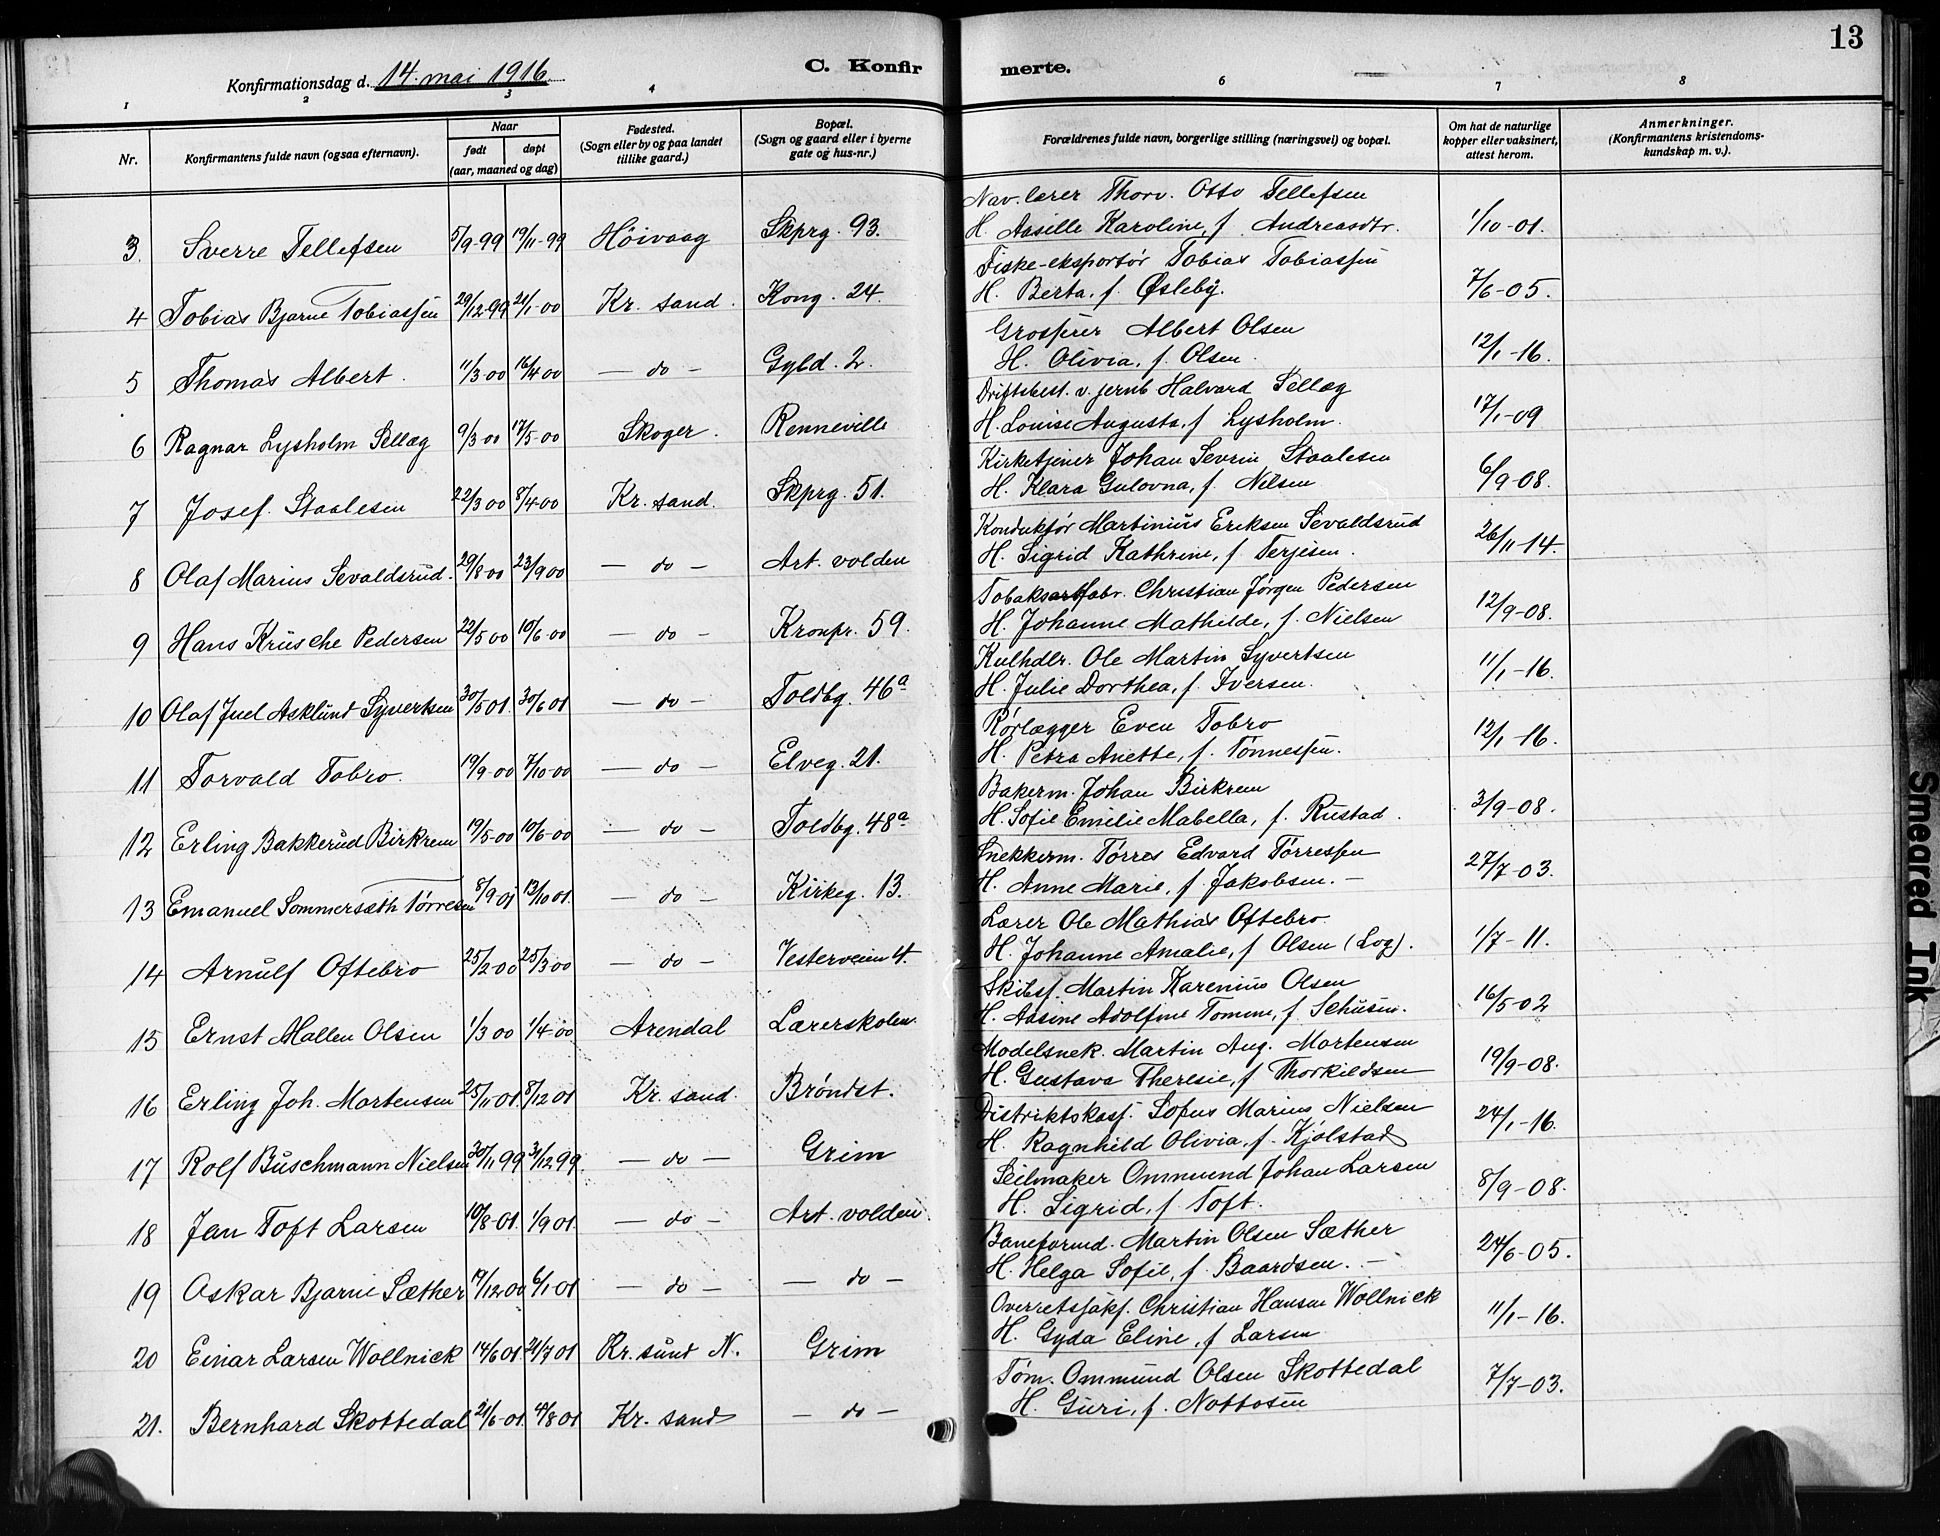 13
Konfirmationsdag d. 14. mai 1916
C. Konfirmerte.
1 2 3 4 6 7 8
Nr. Konfirmantens fulde navn (ogsaa efternavn). Naar født døpt (aar, maaned og dag) Fødested. (Sogn eller by og paa landet tillike gaard.) Bopæl. (Sogn og gaard eller i byerne gate og hus-nr.) Forældrenes fulde navn, borgerlige stilling (næringsvei) og bopæl. Om hat de naturlige kopper eller vaksinert, attest herom. Anmerkninger. (Konfirmantens kristendoms-kundskap m. v.).
Nav. lærer Thorv. Otto Tellefsen
3 Sverre Tellefsen 5/9-99 19/11-99 Høivaag Skprg. 93. H. Aasille Karoline, f. Andreasdtr. 1/10-01.
Fiske-eksportør Tobias Tobiassen
4 Tobias Bjarne Tobiassen 29/12-99 21/1-00 Kr. sand. Kong. 24. H. Berta, f. Øsleby. 7/6-05.
Grosserer Albert Olsen
5 Thomas Albert. 11/3 00 16/4 00 — do — Gyld. 2. H. Olivia, f. Olsen. 12/1-16.
Driftsbest. v. jernb Halvard Sellæg
6 Ragnar Lysholm Sellæg 9/3-00 17/5-00 Skoger. Renneville H. Louise Augusta, f Lysholm. 17/1-09
Kirketjener Johan Sevrin Staalesen
7 Josef. Staalesen 22/3 00 8/4-00 Kr. sand. Skprg. 51. H. Klara Gulovna, f. Nilsen 6/9-08.
Konduktør Martinius Eriksen Sevaldsrud
8 Olaf Marius Sevaldsrud. 29/8-00 23/9 00 — do — Art. volden H. Sigrid Kathrine, f Terjesen. 26/11-14.
Tobaksfabr. Christian Jørgen Pedersen
9 Hans Krüsche Pedersen 22/5 00 10/6-00 — do — Kronpr. 59. H. Johanne Mathilde, f. Nielsen 12/9-08.
Kulhdlr. Ole Martin Syvertsen
10 Olaf Juel Asklund Syvertsen 30/5 01 30/6 01 — do — Toldbg. 46a H. Julie Dorthea, f. Iversen. 11/1-16.
Rørlægger Even Tobro
11 Torvald Tobro. 19/9-00 7/10-00 — do — Elveg. 21. H. Petra Anette, f. Tønnessen. 12/1-16.
Bakerm. Johan Birkrem
12 Erling Bakkerud Birkrem 19/5-00 10/6-00 — do — Toldbg. 48a H. Sofie Emilie Mabella, f. Rustad. 3/9-08.
Snekkerm. Tørres Edvard Tørressen
13 Emanuel Sommersæth Tørresen 8/9-01 13/10 01 — do — Kirkeg. 13. H. Anne Marie, f. Jakobsen. — 27/7-03.
Lærer Ole Mathias Oftebro
14 Arnulf Oftebro 25/2-00 25/3 00 — do — Vesterveien 4. H. Johanne Amalie, f Olsen (Log). 1/7-11.
Skibsf. Martin Karenius Olsen
15 Ernst Mallen Olsen 1/3 00 1/4-00 Arendal Lærerskolen. H. Aasine Adolfine Tomine, f. Schüsen. 16/5-02
Modelsnek. Martin Aug. Mortensen
16 Erling Joh. Mortensen 25/11-01 8/12 01 Kr. sand. Brøndst. H. Gustava Theresie, f Thorkildsen 19/9-08.
Distriktskass. Sofus Marius Nielsen
17 Rolf Buschmann Nielsen 30/11 99 31/12 99. — do — Grim H. Ragnhild Olivia, f. Kjølstad 24/1-16.
Seilmaker Ommund Johan Larsen
18 Jan Toft Larsen 10/8-01 1/9 01 — do — Art. volden. H. Sigrid, f. Toft. 8/9-08.
Baneformd. Martin Olsen Sæther
19 Oskar Bjarne Sæther 19/12 00 6/1 01 — do — — do — H. Helga Sofie, f. Baardsen. — 24/6-05.
Overretssakf. Christian Hansen Wollnick
20 Einar Larsen Wollnick 14/6 01 21/7 01 Kr. sund N. Grim H. Gyda Eline, f Larsen 11/1-16.
Tøm. Ommund Olsen Skottedal
21. Bernhard Skottedal 21/6-01 4/8 01 Kr. sand — do — H. Guri, f. Nottosen 7/7-03.
Smeared Ink